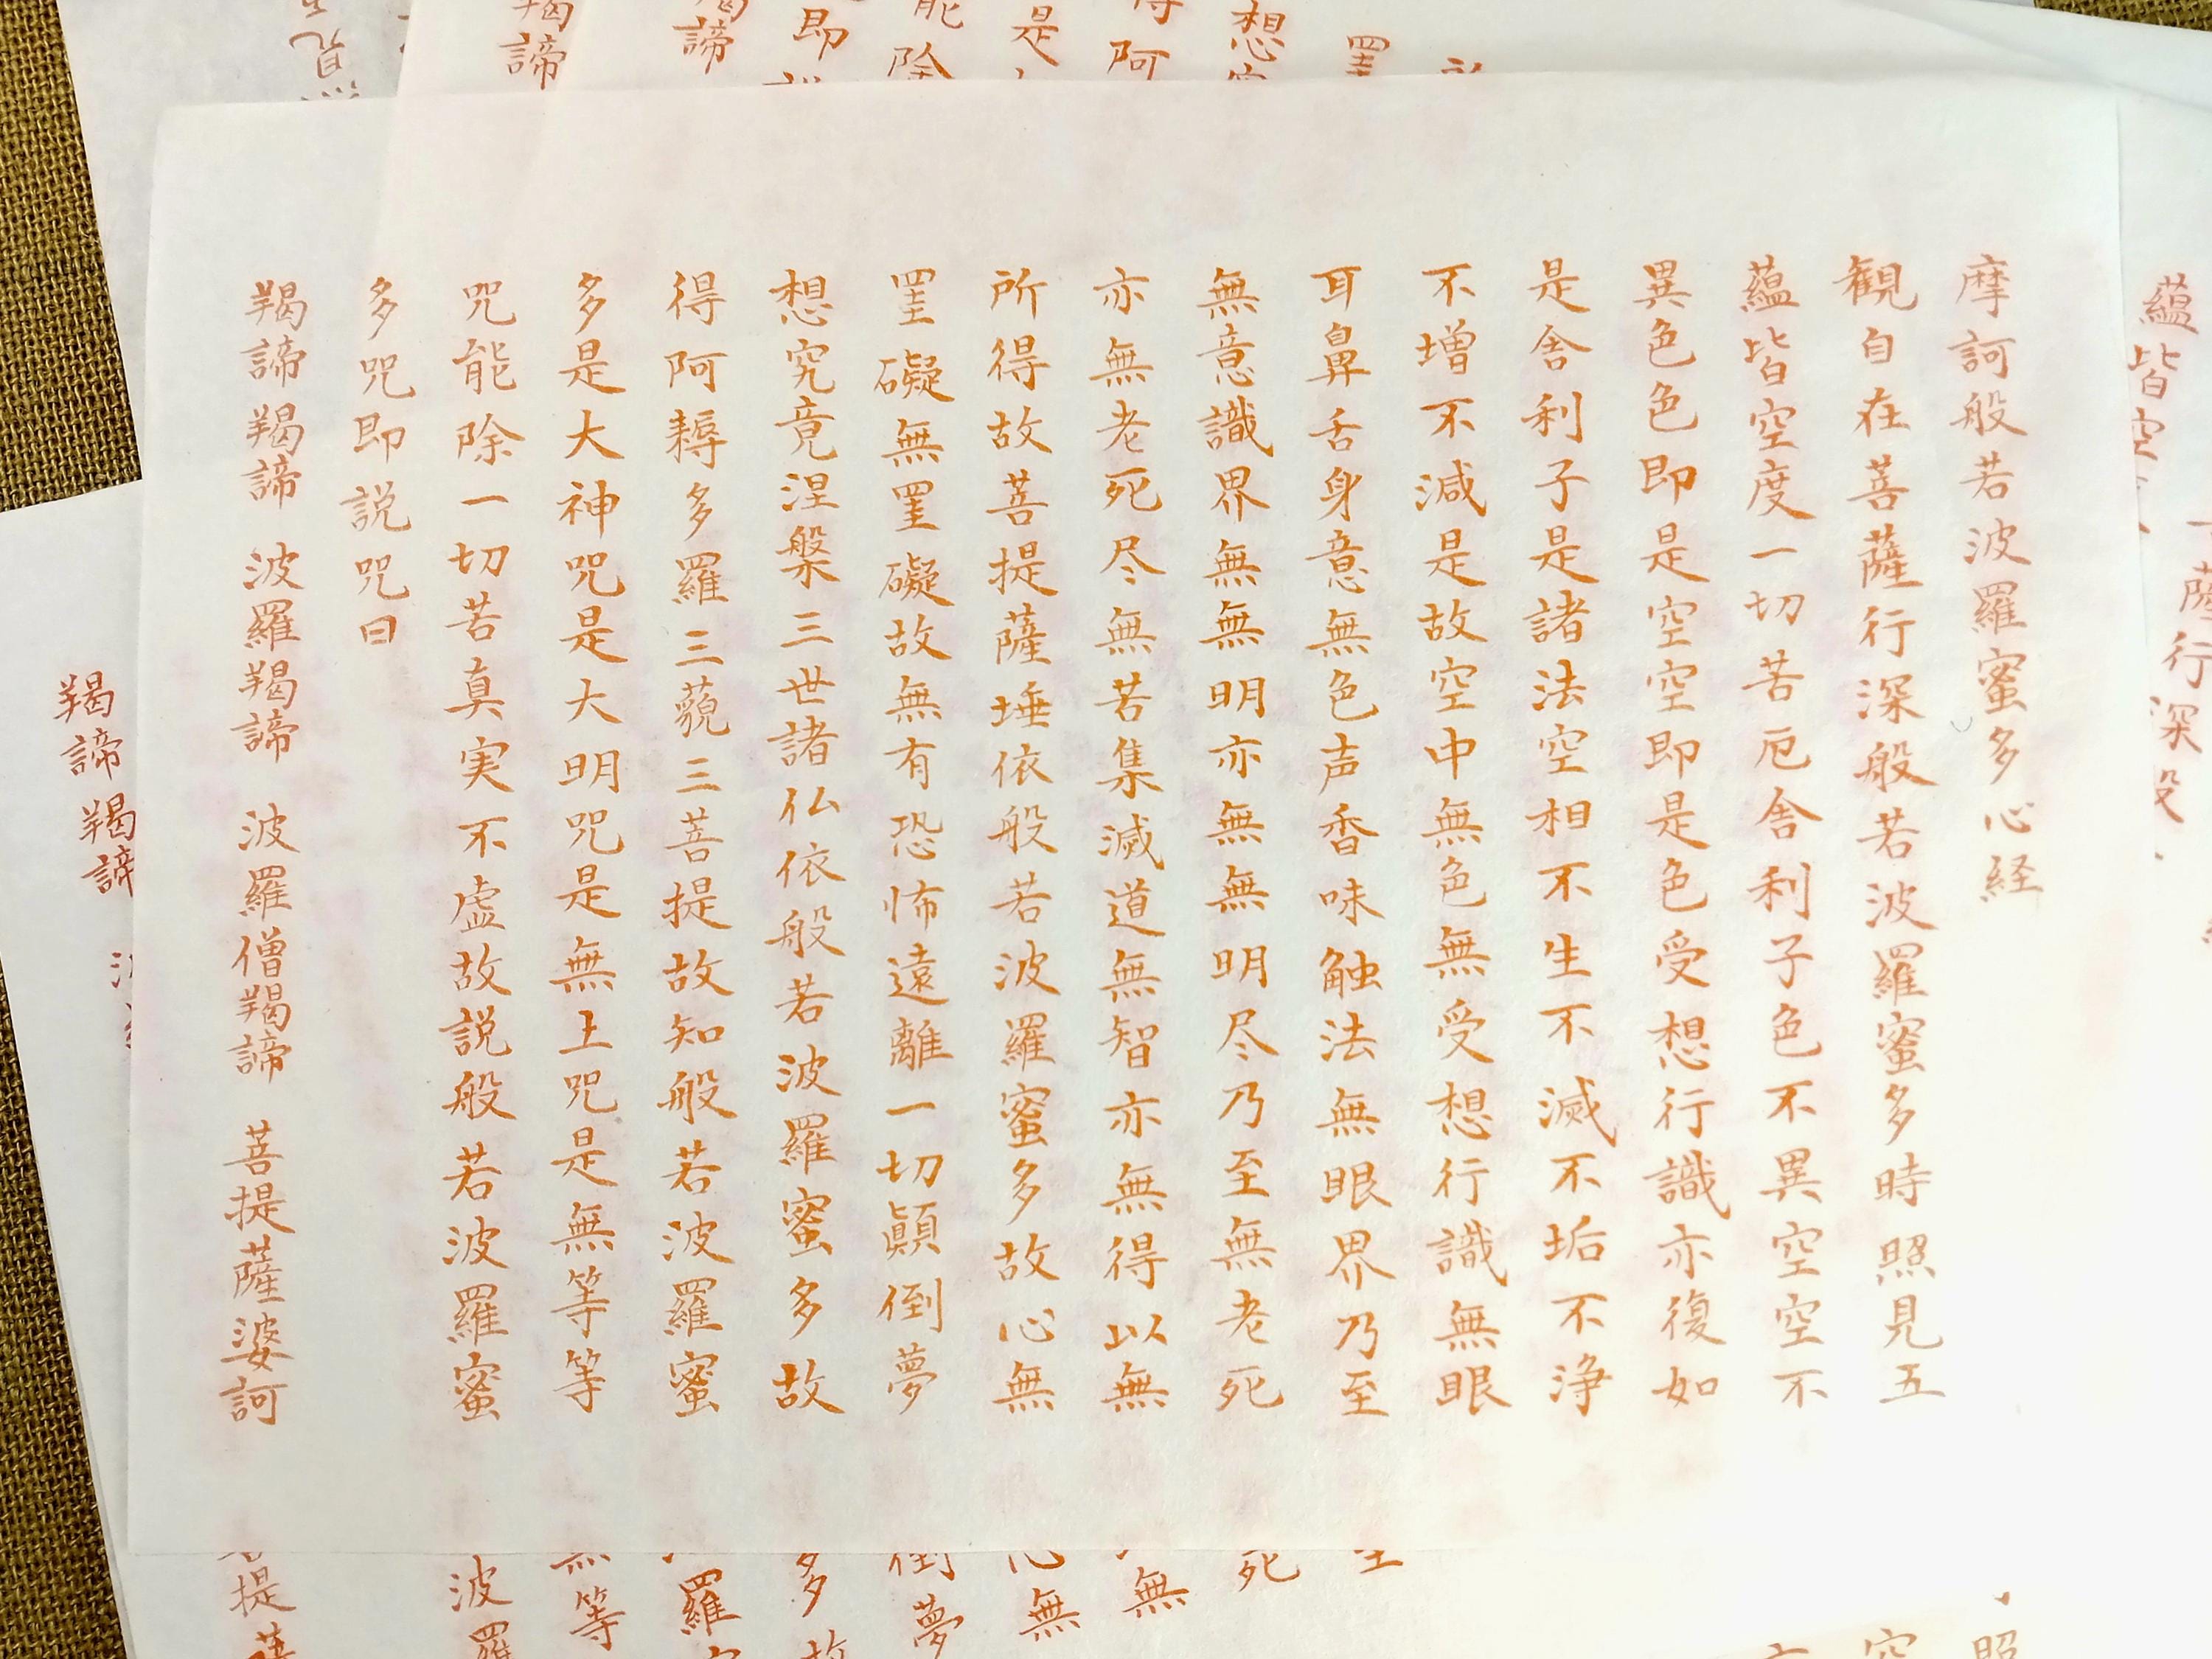 摩訶般若波羅蜜多心経
観自在菩薩行深般若波羅蜜多時照見五
蘊皆空度一切苦厄舎利子色不異空空不
異色色即是空空即是色受想行識亦復如
是舎利子是諸法空相不生不滅不垢不浄
不増不減是故空中無色無受想行識無眼
耳鼻舌身意無色声香味触法無眼界乃至
無意識界無無明亦無無明尽乃至無老死
亦無老死尽無苦集滅道無智亦無得以無
所得故菩提薩埵依般若波羅蜜多故心無
罣礙無罣礙故無有恐怖遠離一切顛倒夢
想究竟涅槃三世諸仏依般若波羅蜜多故
得阿耨多羅三藐三菩提故知般若波羅蜜
多是大神咒是大明咒是無上咒是無等等
咒能除一切苦真実不虚故説般若波羅蜜
多咒即説咒曰
羯諦羯諦 波羅羯諦 波羅僧羯諦 菩提薩婆訶
蘊皆空
薩行深般
想
是
得阿
能除
即
羯諦
羯諦
羯諦羯諦
照
空
死
無
心無
倒夢
多故
羅
無等
波羅
提薩